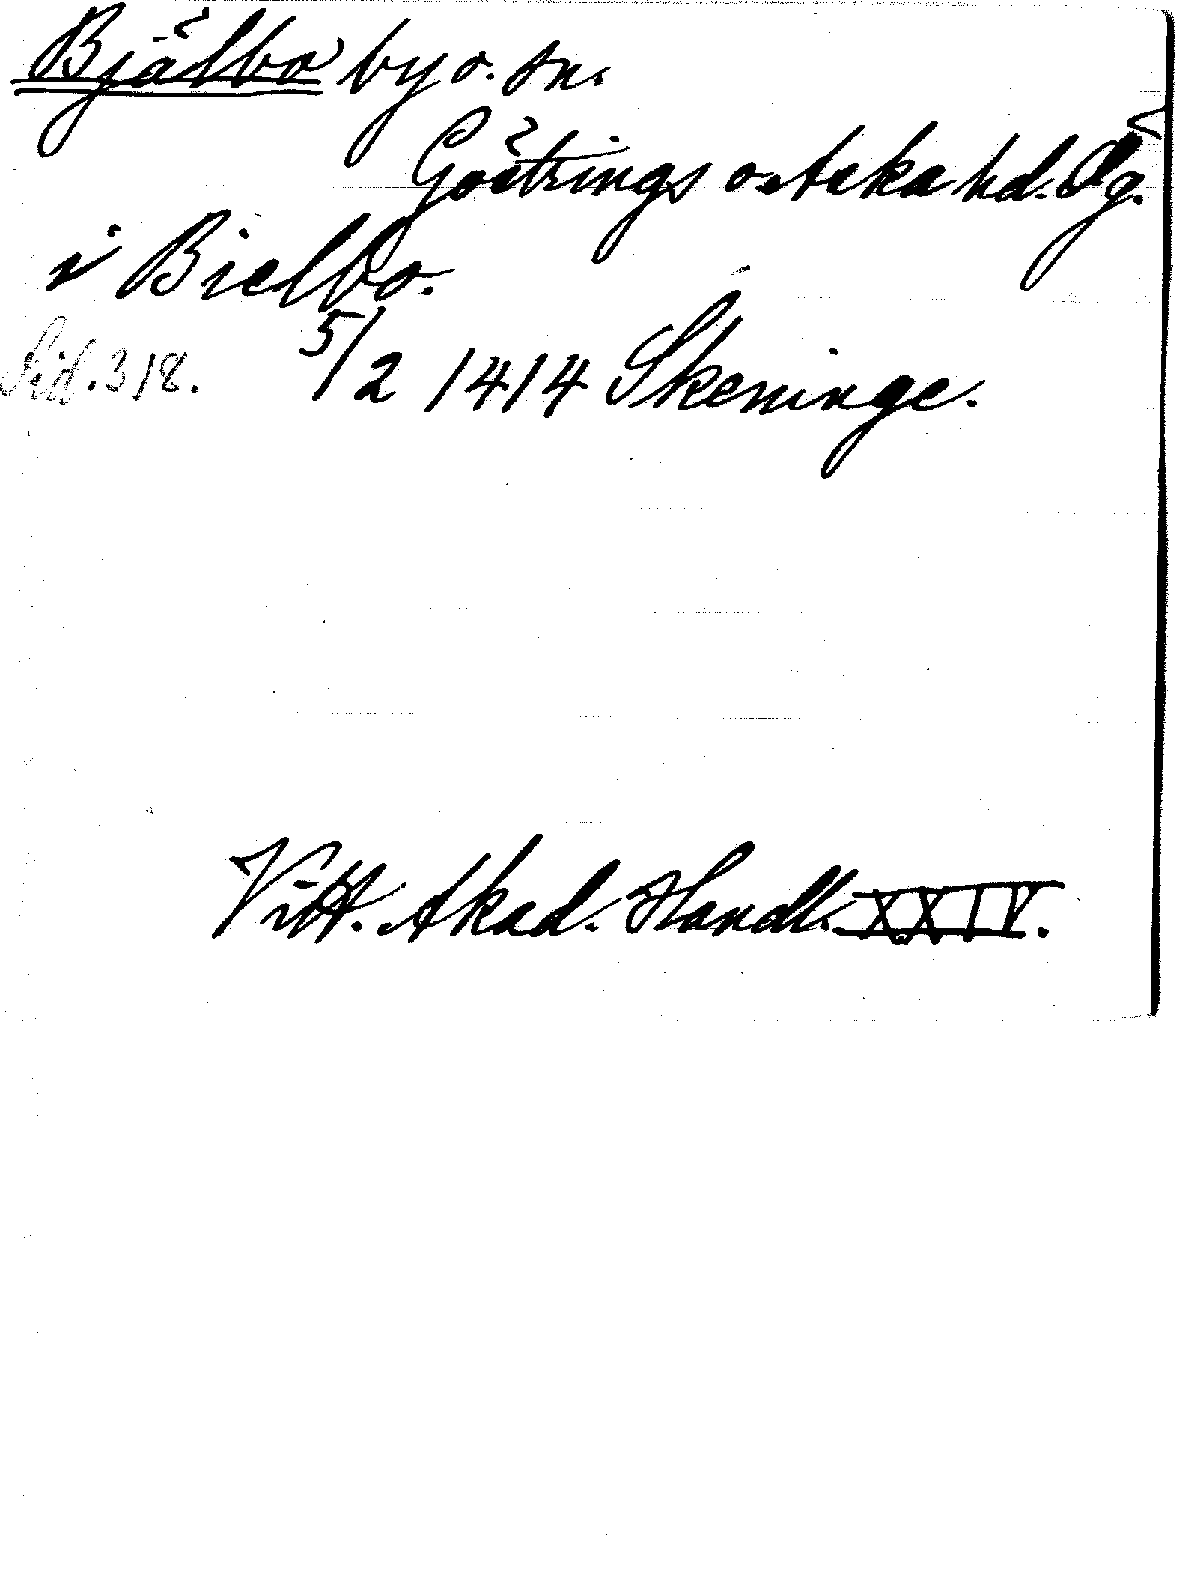 Bjälbo by o. sn.
Göstrings o. Aska hd. Ög.
i Bielbo.
Sid. 318. 5/2 1414 Skeninge.
Vitt. Akad. Handl. XXIV.